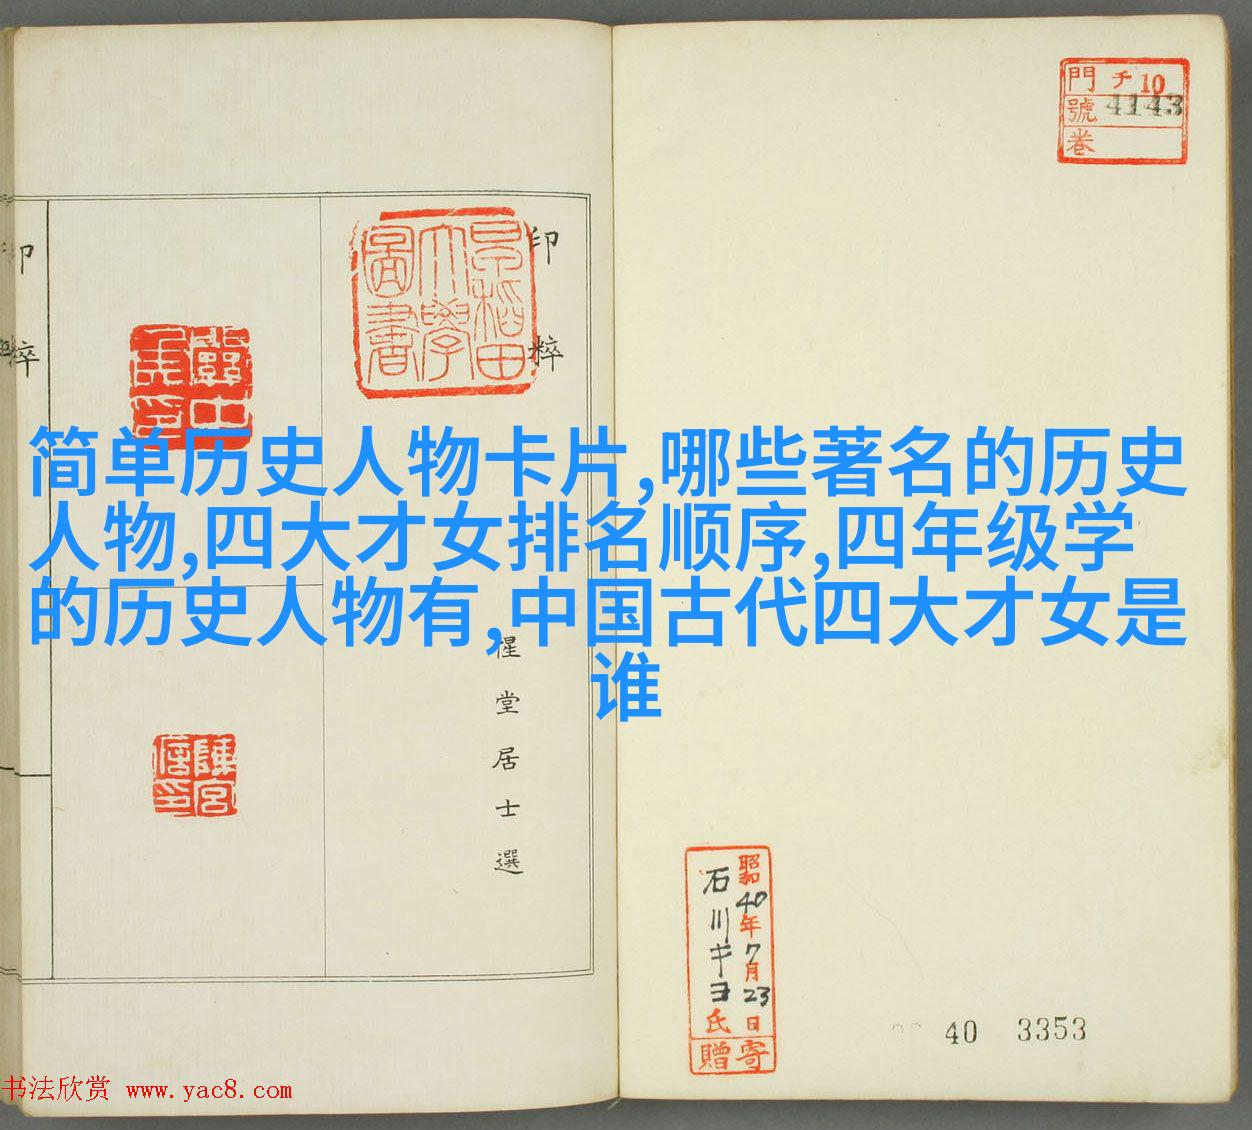 門 チ 10
號 4143
卷
印粹
早稻田
大學
圖書
印粹
惺堂居士選
陳宮
信印
简单历史人物卡片,哪些著名的历史
人物,四大才女排名顺序,四年级学
的历史人物有,中国古代四大才女是
谁
昭和40年7月23日
石川キヨ氏
寄贈
40 3353
书法欣赏 www.yac8.com